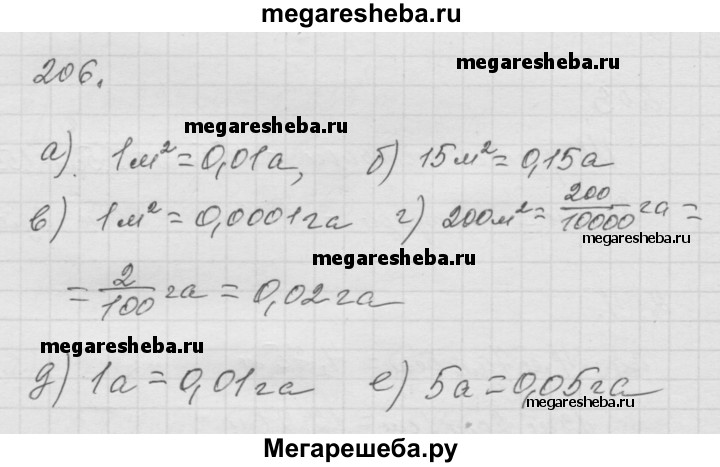 megaresheba.ru
206.
megaresheba.ru
megaresheba.ru
megaresheba.ru
а) 1м²=0,01а, б) 15м²=0,15а
в) 1м²=0,0001га г) 200м²=200/10000 га =
megaresheba.ru
megaresheba.ru
=2/100 га=0,02га
megaresheba.ru
д) 1а=0,01га е) 5а=0,05га
megaresheba.ru
Мегарешеба.ру